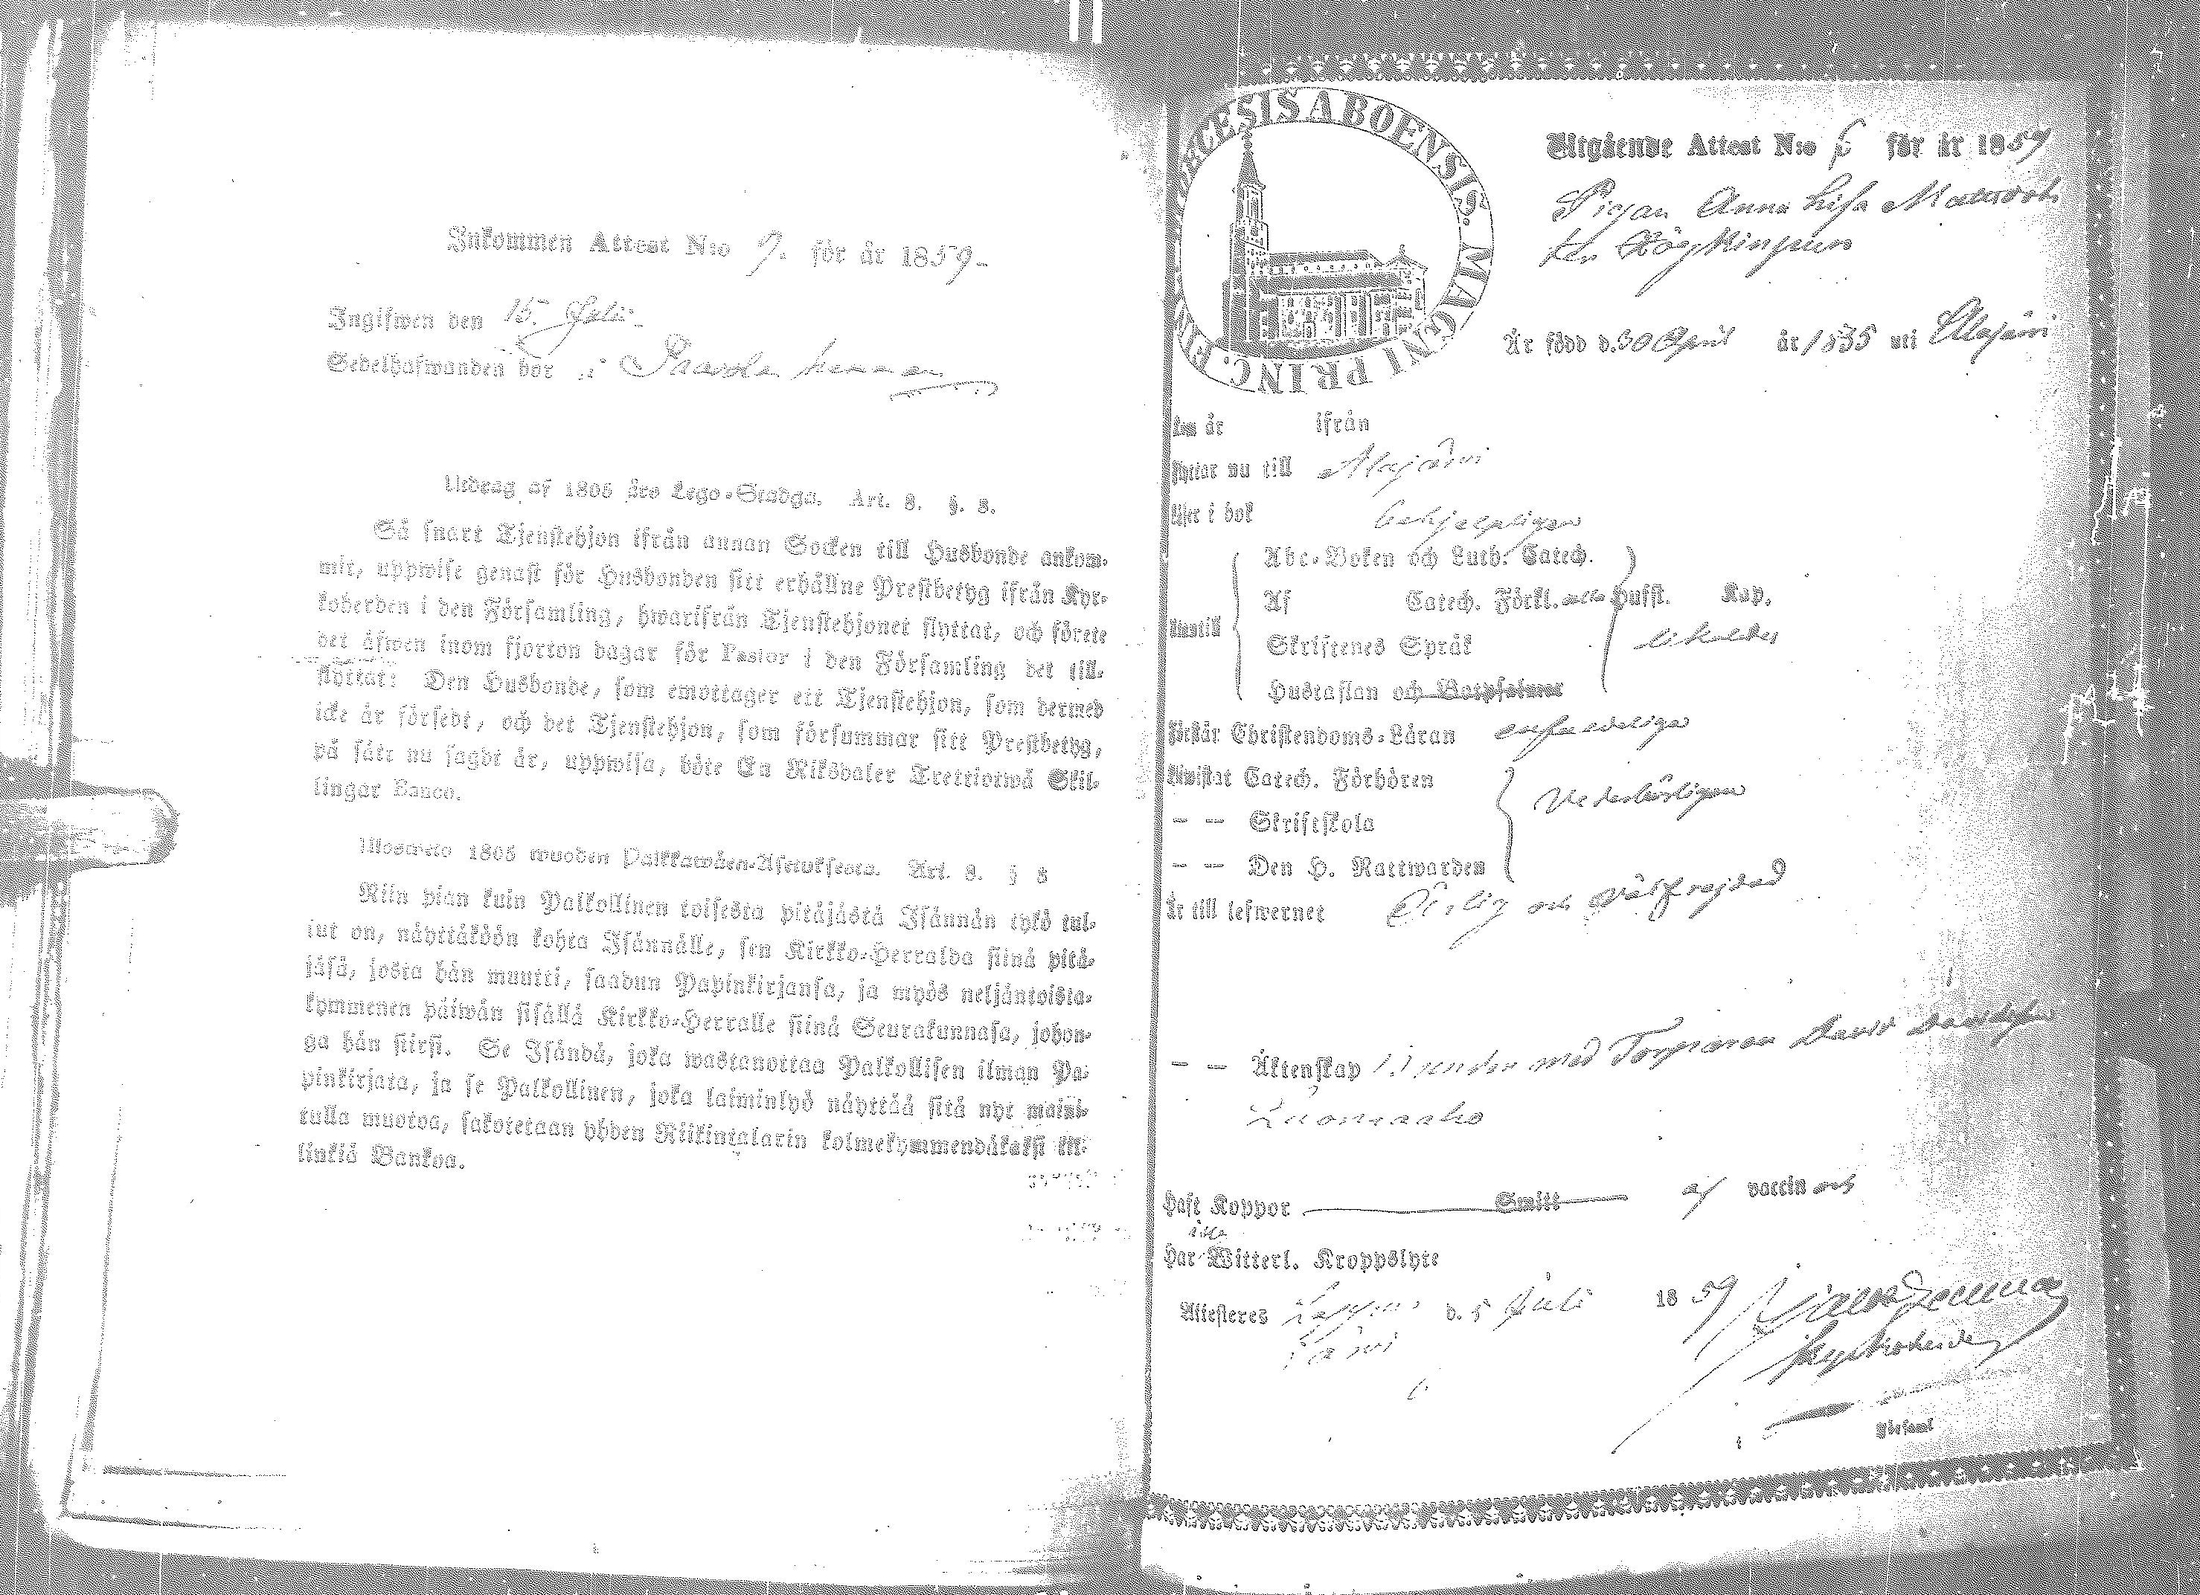 Inkommen Attest N:o 9. för år 1859-
Ingifwen den 15. Juli-
Sedelhafwanden bor i
Utdrag af 1805 års Lego-Stadga. Art. 8. §. 8.
Så snart Tjenstehjon ifrån annan Socken till Husbonde ankom-
mit, uppwise genast för Husbonden sitt erhållne Prestbetyg ifrån Kyr-
koherden i den Församling, hwarifrån Tjenstehjonet flyttat, och förete
det äfwen inom fjorton dagar för Pastor i den Församling det till-
flyttat: Den Husbonde, som emottager ett Tjenstehjon, som dermed
icke är försedt, och det Tjenstehjon, som försummar sitt Prestbetyg,
på sätt nu sagdt är, uppwisa, böte En Riksdaler Trettiotwå Skil-
lingar Banco.
Ulosweto 1805 wuoden Palkkawäen-Asetuksesta. Art. 8. § 8
Niin pian kuin Palkollinen toisesta pitäjästä Isännän tykö tul-
lut on, näyttäköön kohta Isännälle, sen Kirkko-Herralda siinä pitä-
jäsä, josta hän muutti, saadun Papinkirjansa, ja myös neljäntoista-
kymmenen päiwän sisällä Kirkko-Herralle siinä Seurakunnasa, johon-
ga hän siirsi. Se Isändä, joka wastanottaa Palkollisen ilman Pa-
pinkirjata, ja se Palkollinen, joka laiminlyö näyttää sitä nyt maini-
tulla muotoa, sakotetaan yhden Riikintalarin kolmekymmendäkaksi kil-
linkiä Bankoa.
DIOECESIS ABOENSIS. MAGNI PRINC. FIN
Utgående Attest N:o 6 för år 1859
Pigan Anna Lisa Mattsdotr
Är född d. 30 April år 1835 uti Alajärvi
Kom år ifrån
Flyttar nu till Alajärvi
Läser i bok behjelpligen
Abc-Boken och Luth. Catech.
Af Catech. Förkl. alla Hufst. Kap.
Skriftenes Språk
Hustaflan och Botpsalmer
Förstår Christendoms-Läran enfaldeliga
Bewistat Catech. Förhören
— — Skriftskola
— — Den H. Nattwarden
Vederbörligen
Är till lefwernet Ärlig och välfrejdad
— — Äktenskap med Torparen David Davidsson
Luomaaho
Haft Koppor Smitt af vaccin och
icke
Har Witterl. Kroppslyte
Attesteres Lappa-
järvi
d. 5 Juli 1859
Församl